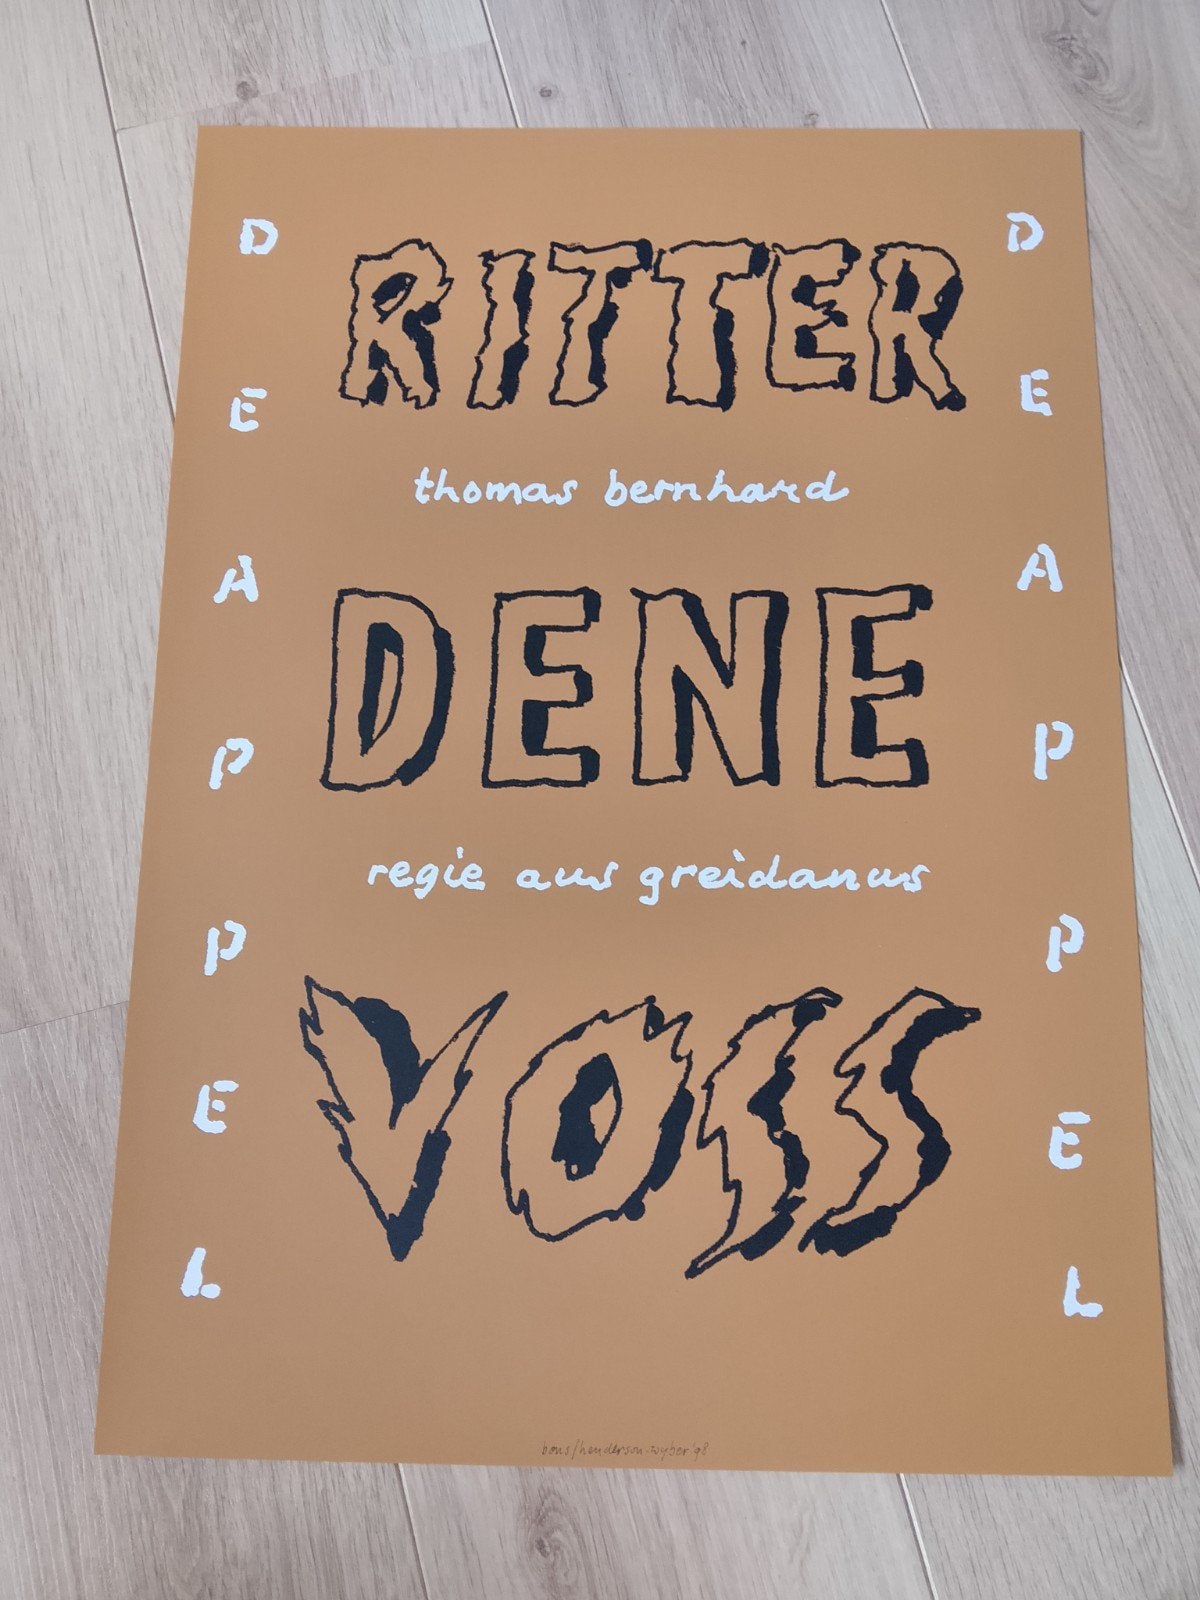 DE APPEL
RITTER
thomas bernhard
DENE
regie aus greidanus
VOSS
DE APPEL
bons/henderson-wyber '98